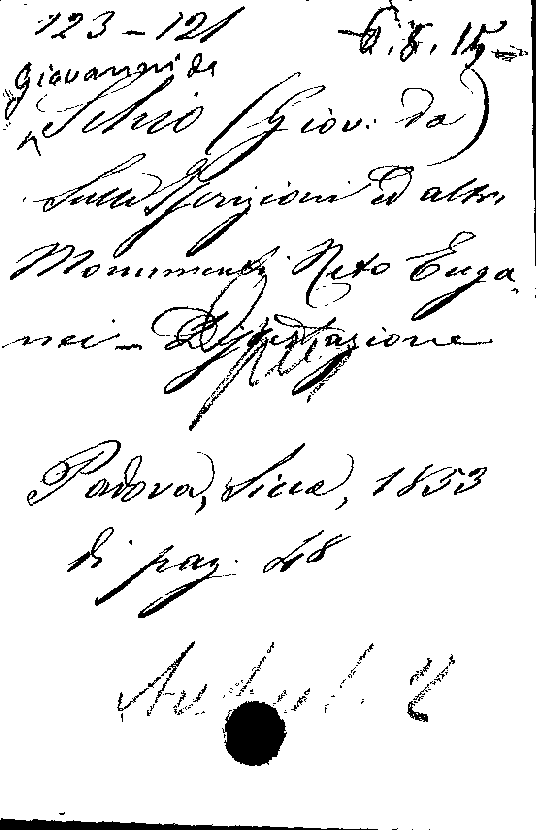 123-121 6.8.15
Giovanni da
Schio (Giov: da)
Sulle Iscrizioni ed altri
Monumenti Reto Euga
nei - Dissertazione
Padova, Sicca, 1853
di pag. 48